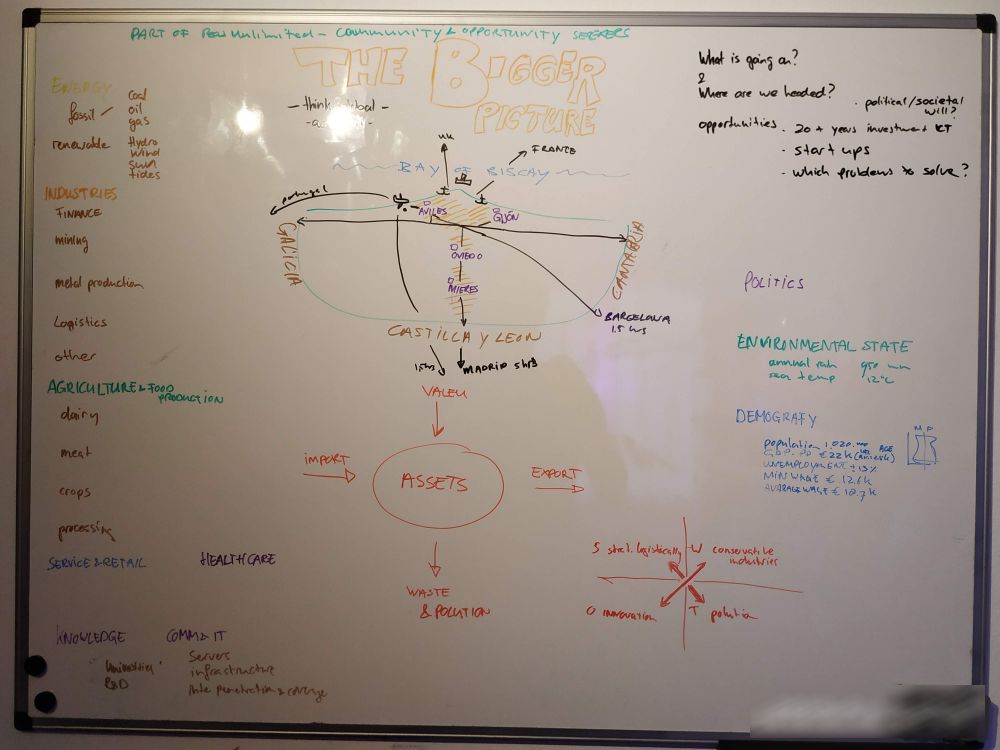 PART OF Unlimited - COMMUNITY & OPPORTUNITY SEEKERS
THE BIGGER
PICTURE
- think global -
What is going on?
&
Where are we headed?
· political/societal
will?
opportunities
· 20+ years investment
· start ups
· which problems to solve?
ENERGY
fossil
coal
oil
gas
renewable
Hydro
Wind
Sun
tides
INDUSTRIES
FINANCE
mining
metal production
Logistics
other
AGRICULTURE & FOOD
PRODUCTION
dairy
meat
crops
processing
SERVICE & RETAIL
HEALTHCARE
KNOWLEDGE
Universities
R&D
COMM & IT
Servers
infrastructure
penetration & coverage
UK
FRANCE
BAY OF BISCAY
portugal
AVILES
GIJÓN
OVIEDO
MIERES
GALICIA
CANTABRIA
CASTILLA Y LEON
BARCELONA
1.5 hrs
MADRID 5 hrs
VALEU
IMPORT
ASSETS
EXPORT
WASTE
& POLUTION
POLITICS
ENVIRONMENTAL STATE
annual rain 950 mm
sea temp 12°C
DEMOGRAFY
population 1.020.000
AGE
M F
G.D.P. PP € 22K
UNEMPLOYMENT ±13%
MIN WAGE € 12.6K
AVARAGE WAGE € 18.7K
S strat. logistically
W conservative
industries
O innovation
T polution